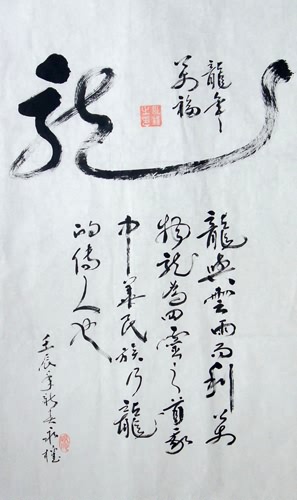 龍
龍年
萬福
龍興雲雨而利萬
物龍為四靈之首我
中華民族乃龍
的傳人也
壬辰年新春永